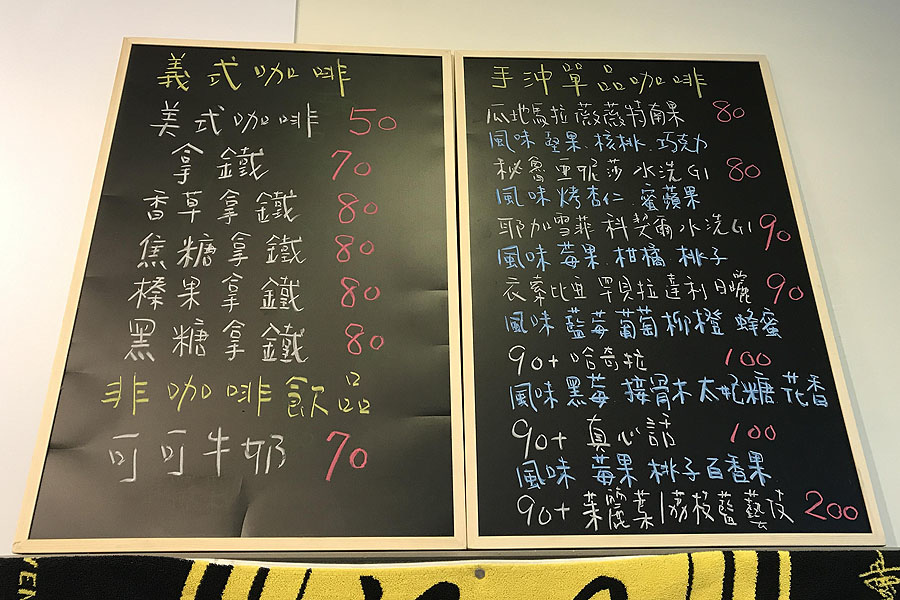 義式咖啡
美式咖啡 50
拿鐵 70
香草拿鐵 80
焦糖拿鐵 80
榛果拿鐵 80
黑糖拿鐵 80
非咖啡飲品
可可牛奶 70
手沖單品咖啡
瓜地馬拉薇薇特南果 80
風味 堅果.核桃.巧克力
秘魯亞妮莎水洗G1 80
風味 烤杏仁.蜜蘋果
耶加雪菲 科契爾水洗G1 90
風味 莓果.柑橘.桃子
衣索比亞 罕貝拉達利日曬 90
風味 藍莓葡萄柳橙 蜂蜜
90+ 哈奇拉 100
風味 黑莓 接骨木 太妃糖 花香
90+ 真心話 100
風味 莓果 桃子百香果
90+ 茱麗葉/荔枝藍藝伎 200
VEN